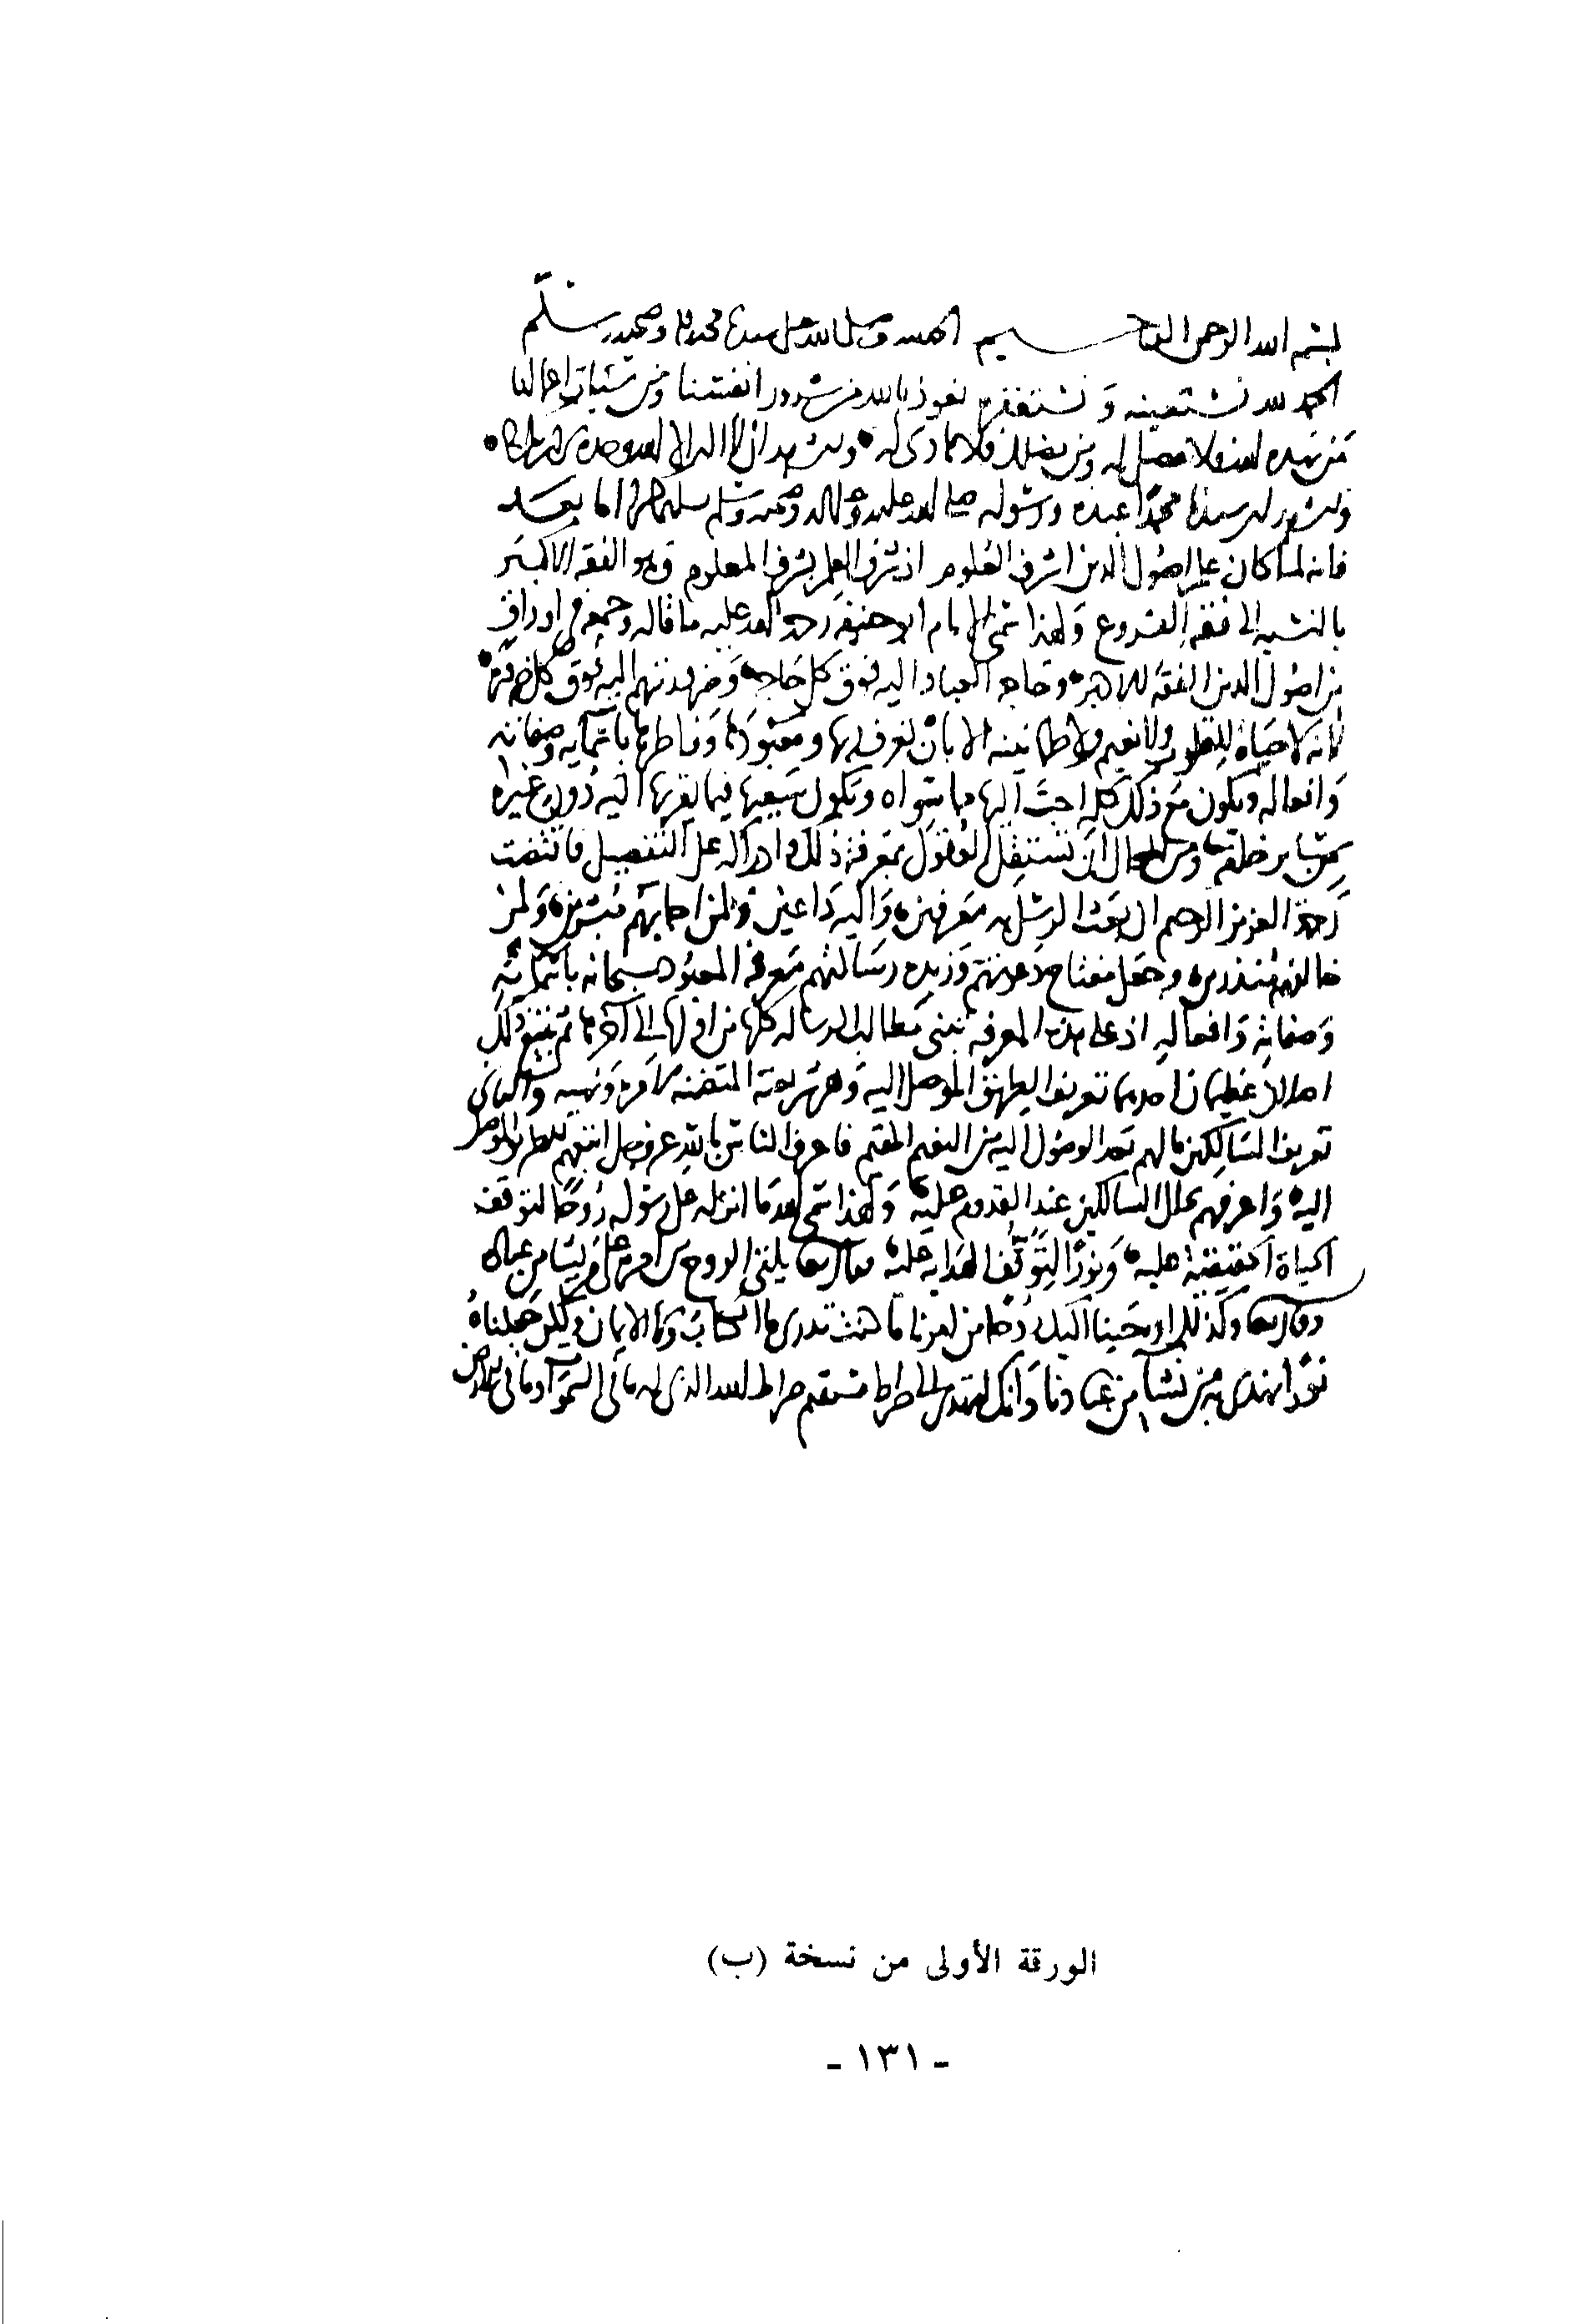 بسم الله الرحمن الرحيم الحمد لله وصلى الله على سيدنا محمد وآله وصحبه وسلم
الحمد لله نستعينه ونستغفره نعوذ بالله من شرور انفسنا ومن سيئات اعمالنا
من يهده الله فلا مضل له ومن يضلل فلا هادى له ونشهد ان لا اله الا الله وحده لا شريك له
ونشهد ان سيدنا محمدا عبده ورسوله صلى الله عليه وعلى آله وصحبه وسلم تسليما كثيرا اما بعد
فانه لما كان علم اصول الدين اشرف العلوم اذ شرف العلم بشرف المعلوم وهو الفقه الاكبر
بالنسبة الى فقه الفروع ولهذا سمى الامام ابو حنيفة رحمة الله عليه ما قاله وجمعه فى اوراق
من اصول الدين الفقه الاكبر وحاجة العباد اليه فوق كل حاجة وضرورتهم اليه فوق كل ضرورة
لانه لا حياة للقلوب ولا نعيم ولا طمانينة الا بان تعرف ربها ومعبودها وفاطرها باسمايه وصفاته
وافعاله ويكون مع ذلك كله احب اليها مما سواه ويكون سعيها فيما يقربها اليه دون غيره
من سائر خلقه ومن المحال ان تستقل العقول بمعرفة ذلك وادراكه على التفصيل فاقتضت
رحمة العزيز الرحيم ان بعث الرسل به معرفين واليه داعين ولمن اجابهم مبشرين ولمن
خالفهم منذرين وجعل مفتاح دعوتهم وزبدة رسالتهم معرفة المعبود سبحانه باسمائه
وصفاته وافعاله اذ على هذه المعرفة تبنى مطالب الرسالة كلها من اولها الى آخرها ثم يتبع ذلك
اصلان عظيمان احدهما تعريف الطريق الموصل اليه وهى شريعته المتضمنة لامره ونهيه والثانى
تعريف السالكين ما لهم بعد الوصول اليه من النعيم المقيم فاعرف الناس بالله عز وجل اتبعهم للطريق الموصل
اليه واعرفهم بحال السالكين عند القدوم عليه ولهذا سمى الله ما انزله على رسوله روحا لتوقف
الحياة الحقيقية عليه ونورا لتوقف الهداية عليه فقال تعالى يلقى الروح من امره على من يشا من عباده
وقال تعالى وكذلك اوحينا اليك روحا من امرنا ما كنت تدرى ما الكتاب ولا الايمان ولكن جعلناه
نورا نهدى به من نشا من عبادنا وانك لتهدى الى صراط مستقيم صراط الله الذى له ما فى السموات وما فى الارض
الورقة الأولى من نسخة (ب)
- ١٣١ -